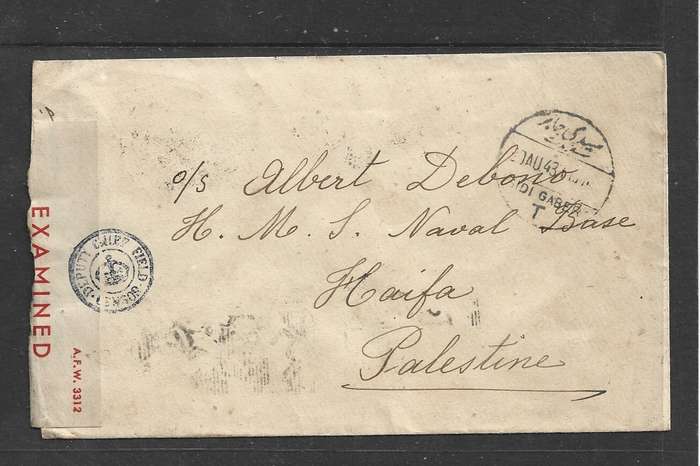 o/s Albert Debono
H. M. S. Naval Base
Haifa
Palestine
سيدى جابر
AU 43
SIDI GABER
T
EXAMINED
A.F.W. 3312
DEPUTY CHIEF FIELD CENSOR